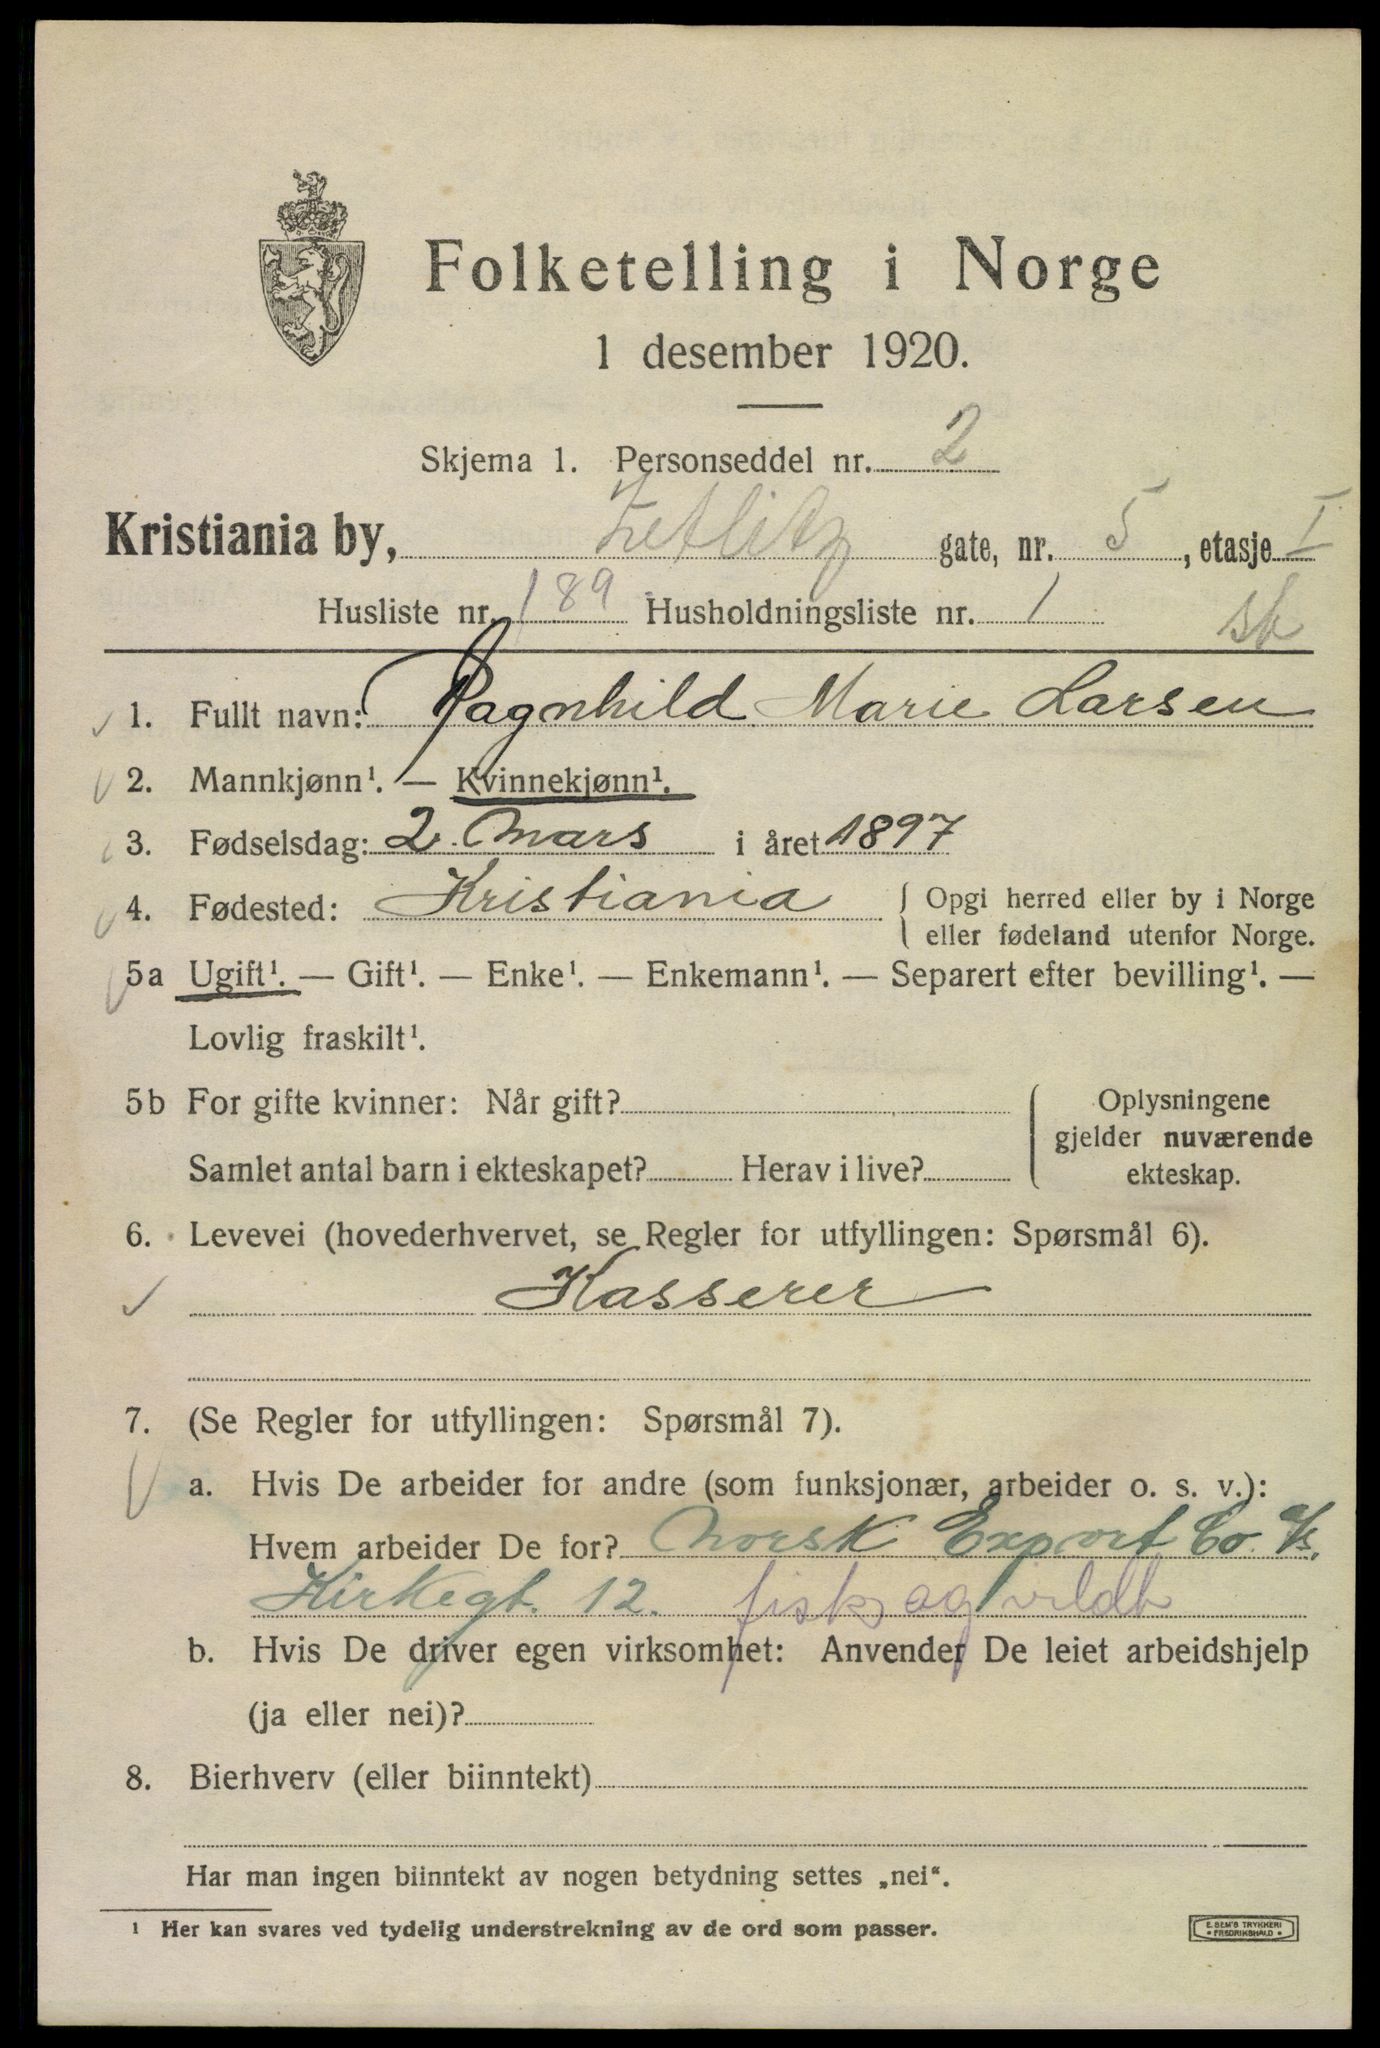 Folketelling i Norge
1 desember 1920.
Skjema 1. Personseddel nr. 2
Kristiania by, Zetlitz gate, nr. 5, etasje I
Husliste nr. 189 Husholdningsliste nr. 1
1. Fullt navn: Ragnhild Marie Larsen
2. Mannkjønn¹. — Kvinnekjønn¹.
3. Fødselsdag: 2. mars i året 1897
4. Fødested: Kristiania { Opgi herred eller by i Norge
eller fødeland utenfor Norge.
5a Ugift¹. — Gift¹. — Enke¹. — Enkemann¹. — Separert efter bevilling¹. —
Lovlig fraskilt¹.
5b For gifte kvinner: Når gift? { Oplysningene
gjelder nuværende
Samlet antal barn i ekteskapet? Herav i live? ekteskap.
6. Levevei (hovederhvervet, se Regler for utfyllingen: Spørsmål 6).
Kasserer
7. (Se Regler for utfyllingen: Spørsmål 7).
a. Hvis De arbeider for andre (som funksjonær, arbeider o. s. v.):
Hvem arbeider De for? Norsk Export Co. A/s.
Kirkegt. 12. fisk og vildt
b. Hvis De driver egen virksomhet: Anvender De leiet arbeidshjelp
(ja eller nei)?
8. Bierhverv (eller biinntekt)
Har man ingen biinntekt av nogen betydning settes „nei“.
¹ Her kan svares ved tydelig understrekning av de ord som passer.
E. SEM'S TRYKKERI
• FREDRIKSHALD •